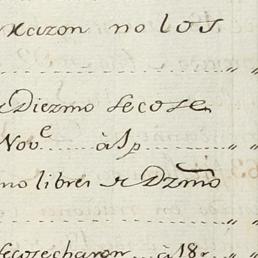 razon no los
Diezmo se cose
Nov^e à 1p
no libres de Dzmõ
se cosecharon à 18r